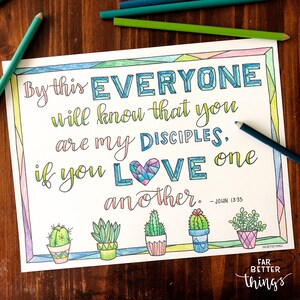 By this EVERYONE
will know that you
are my DISCIPLES,
if you LOVE one
another. - JOHN 13:35
FAR
BETTER
things